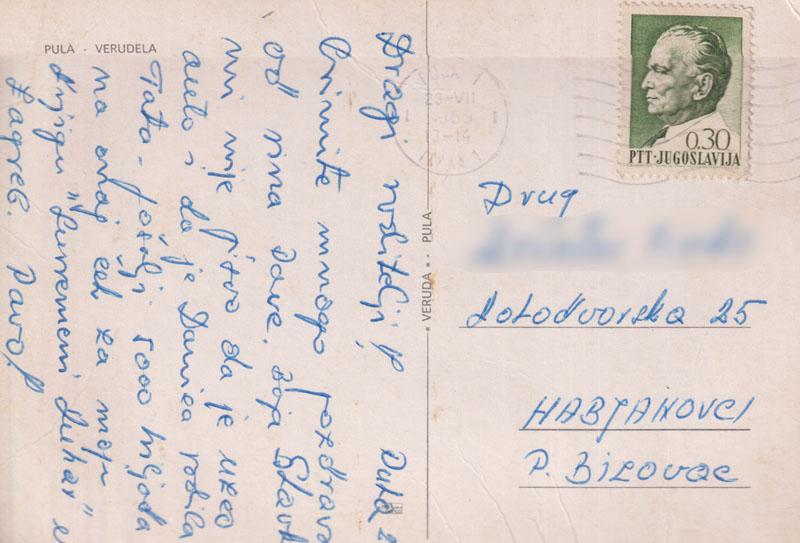 PULA - VERUDELA
Dragi roditelji! Pula 2
Primite mnogo pozdrava
od sina Pave. Slavk
mi nije da je uzeo
auto i da je Danica rodila
Tata - pošalji 5000 hiljada
na onaj ček za moju
knjigu "Suvremeni kuhar" u
Zagreb. Pavo!
VERUDA - PULA
PULA 1
23-VII
13-14
0.30
PTT·JUGOSLAVIJA
Drug
Kolodvorska 25
HABJANOVCI
P. Bizovac